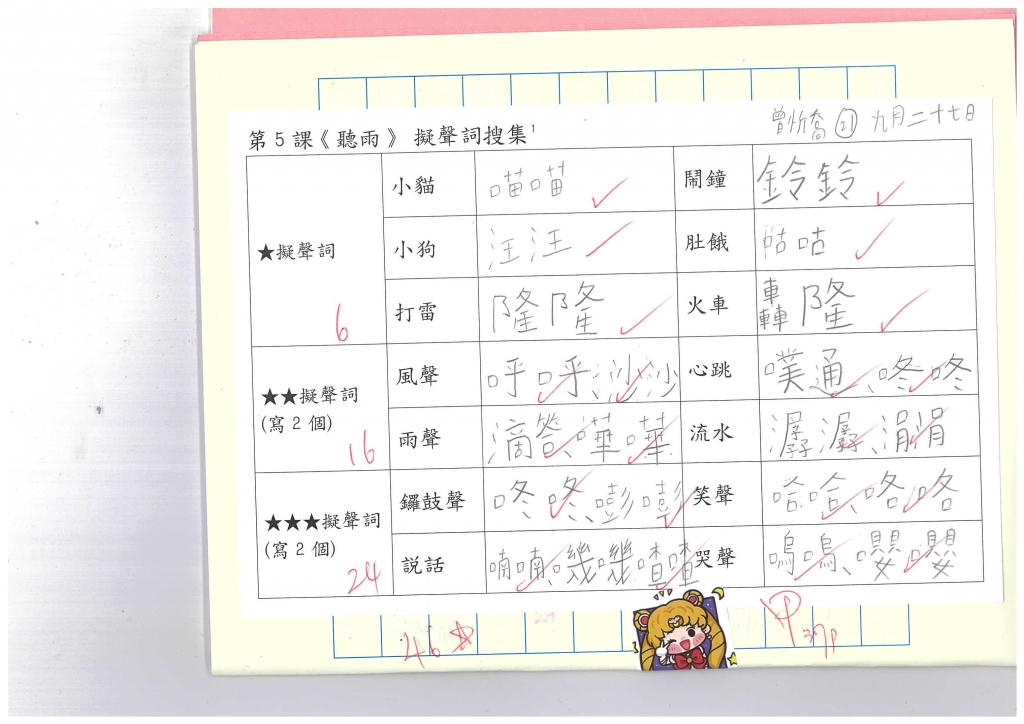 曾忻喬 21 九月二十七日
第5課《聽雨》 擬聲詞搜集
★擬聲詞 6
小貓 喵喵 鬧鐘 鈴鈴
小狗 汪汪 肚餓 咕咕
打雷 隆隆 火車 轟隆
★★擬聲詞
(寫2個) 16
風聲 呼呼、沙沙 心跳 噗通、咚咚
雨聲 滴答、嘩嘩 流水 潺潺、涓涓
★★★擬聲詞
(寫2個) 24
鑼鼓聲 咚咚、嘭嘭 笑聲 哈哈、咯咯
説話 喃喃、嘰嘰喳喳 哭聲 嗚嗚、嚶嚶
46 甲